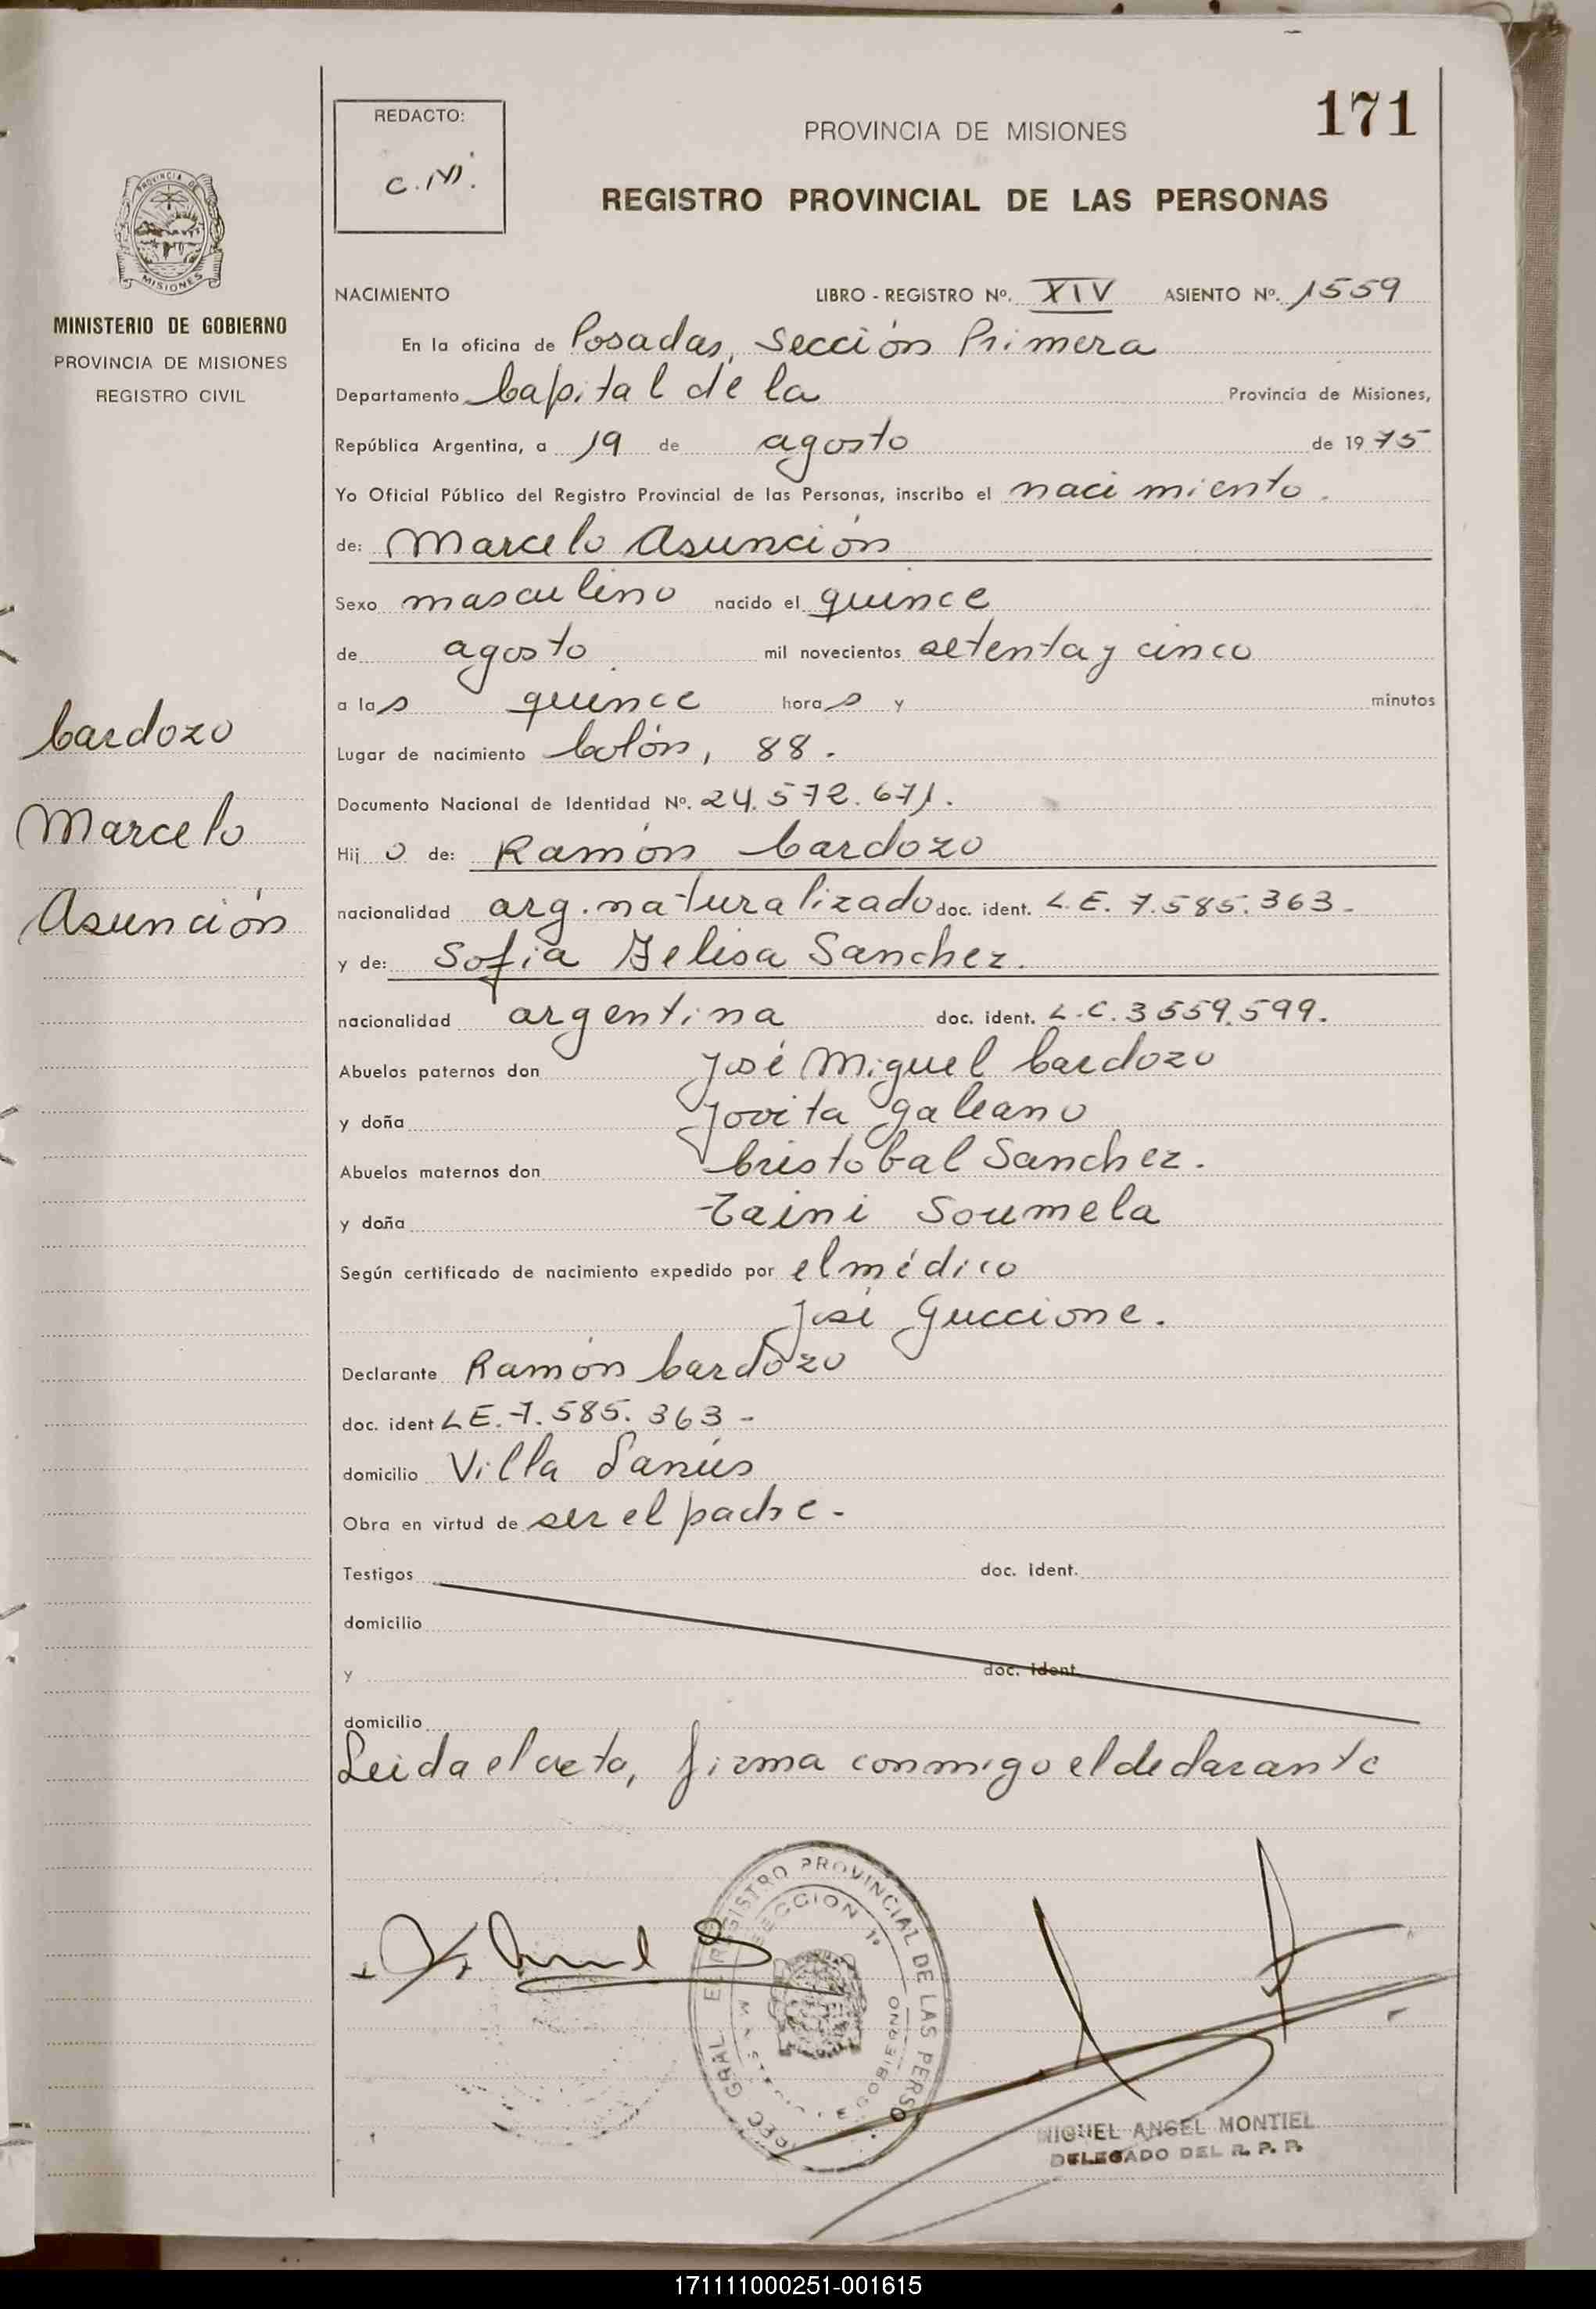 171
REDACTO:
C.M.
PROVINCIA DE MISIONES
REGISTRO PROVINCIAL DE LAS PERSONAS
PROVINCIA DE
MISIONES
MINISTERIO DE GOBIERNO
PROVINCIA DE MISIONES
REGISTRO CIVIL
Cardozo
Marcelo
Asunción
NACIMIENTO LIBRO - REGISTRO Nº. XIV ASIENTO Nº. 1559
En la oficina de Posadas, Sección Primera
Departamento Capital de la Provincia de Misiones,
República Argentina, a 19 de agosto de 1975
Yo Oficial Público del Registro Provincial de las Personas, inscribo el nacimiento.
de: Marcelo Asunción
Sexo masculino nacido el quince
de agosto mil novecientos setenta y cinco
a las quince horas y minutos
Lugar de nacimiento Colón, 88.
Documento Nacional de Identidad Nº. 24.572.671.
Hijo de: Ramón Cardozo
nacionalidad arg. naturalizado doc. ident. L.E. 7.585.363-
y de: Sofia Selisa Sanchez.
nacionalidad argentina doc. ident. L.C. 3559.599.
Abuelos paternos don José Miguel Cardozo
y doña Jovita Galeano
Abuelos maternos don Cristobal Sanchez.
y doña Taini Soumela
Según certificado de nacimiento expedido por el médico
José Guccione.
Declarante Ramón Cardozo
doc. ident L.E. 7.585.363-
domicilio Villa Lanús
Obra en virtud de ser el padre-
Testigos doc. ident.
domicilio
y doc. ident
domicilio
Leida el acta, firma conmigo el declarante
REGISTRO PROVINCIAL DE LAS PERSO
SECCION 1ª
GOBIERNO
MIGUEL ANGEL MONTIEL
DELEGADO DEL R. P. P.
171111000251-001615